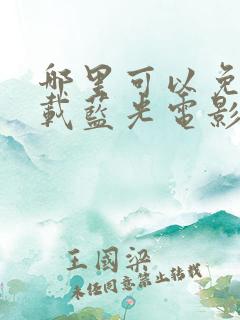 哪里可以免
载蓝光电影
王国梁
未经同意禁止转载